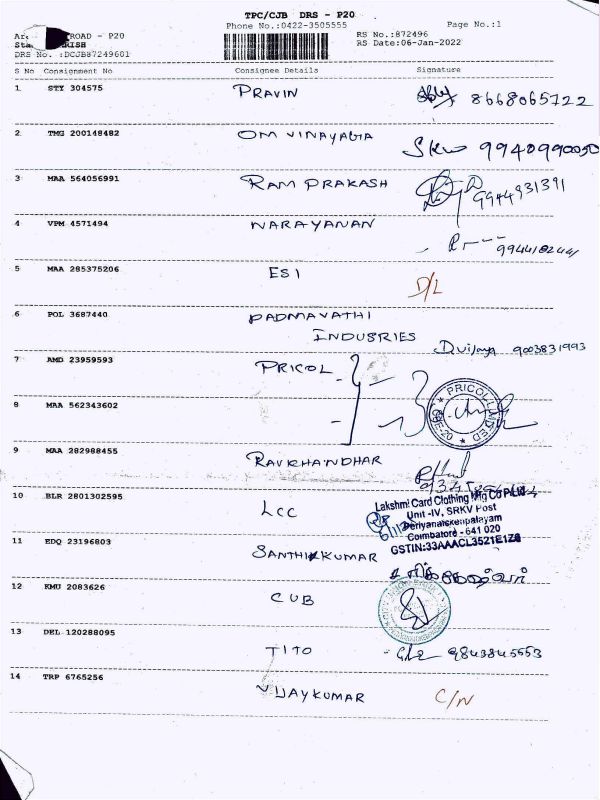 TPC/CJB DRS - P20
Phone No.:0422-3505555
Page No.:1
ROAD - P20
RS No.:872496
RISH
RS Date:06-Jan-2022
DRS No. :DCJB87249601
S No Consignment No Consignee Details Signature
1 STY 304575 PRAVIN 8668065722
2 TMG 200148482 OM VINAYAGA 9940990050
3 MAA 564056991 RAM PRAKASH 9944931391
4 VPM 4571494 NARAYANAN 9944182441
5 MAA 285375206 ESI D/L
6 POL 3687440 PADMAVATHI
INDUSRIES D vijaya 9003831993
7 AMD 23959593 PRICOL
PRICOL LIMITED
8 MAA 562343602
9 MAA 282988455 RAVICHANDHAR
10 BLR 2801302595 LCC
Lakshmi Card Clothing Mfg Co P Ltd
Unit -IV, SRKV Post
Periyanaickenpalayam
Coimbatore - 641 020
GSTIN:33AAACL3521E1Z8
11 EDQ 23196803 SANTHIKKUMAR
12 KMU 2083626 CUB
13 DEL 120288095 TITO 9843845553
14 TRP 6765256 VIJAYKUMAR C/N